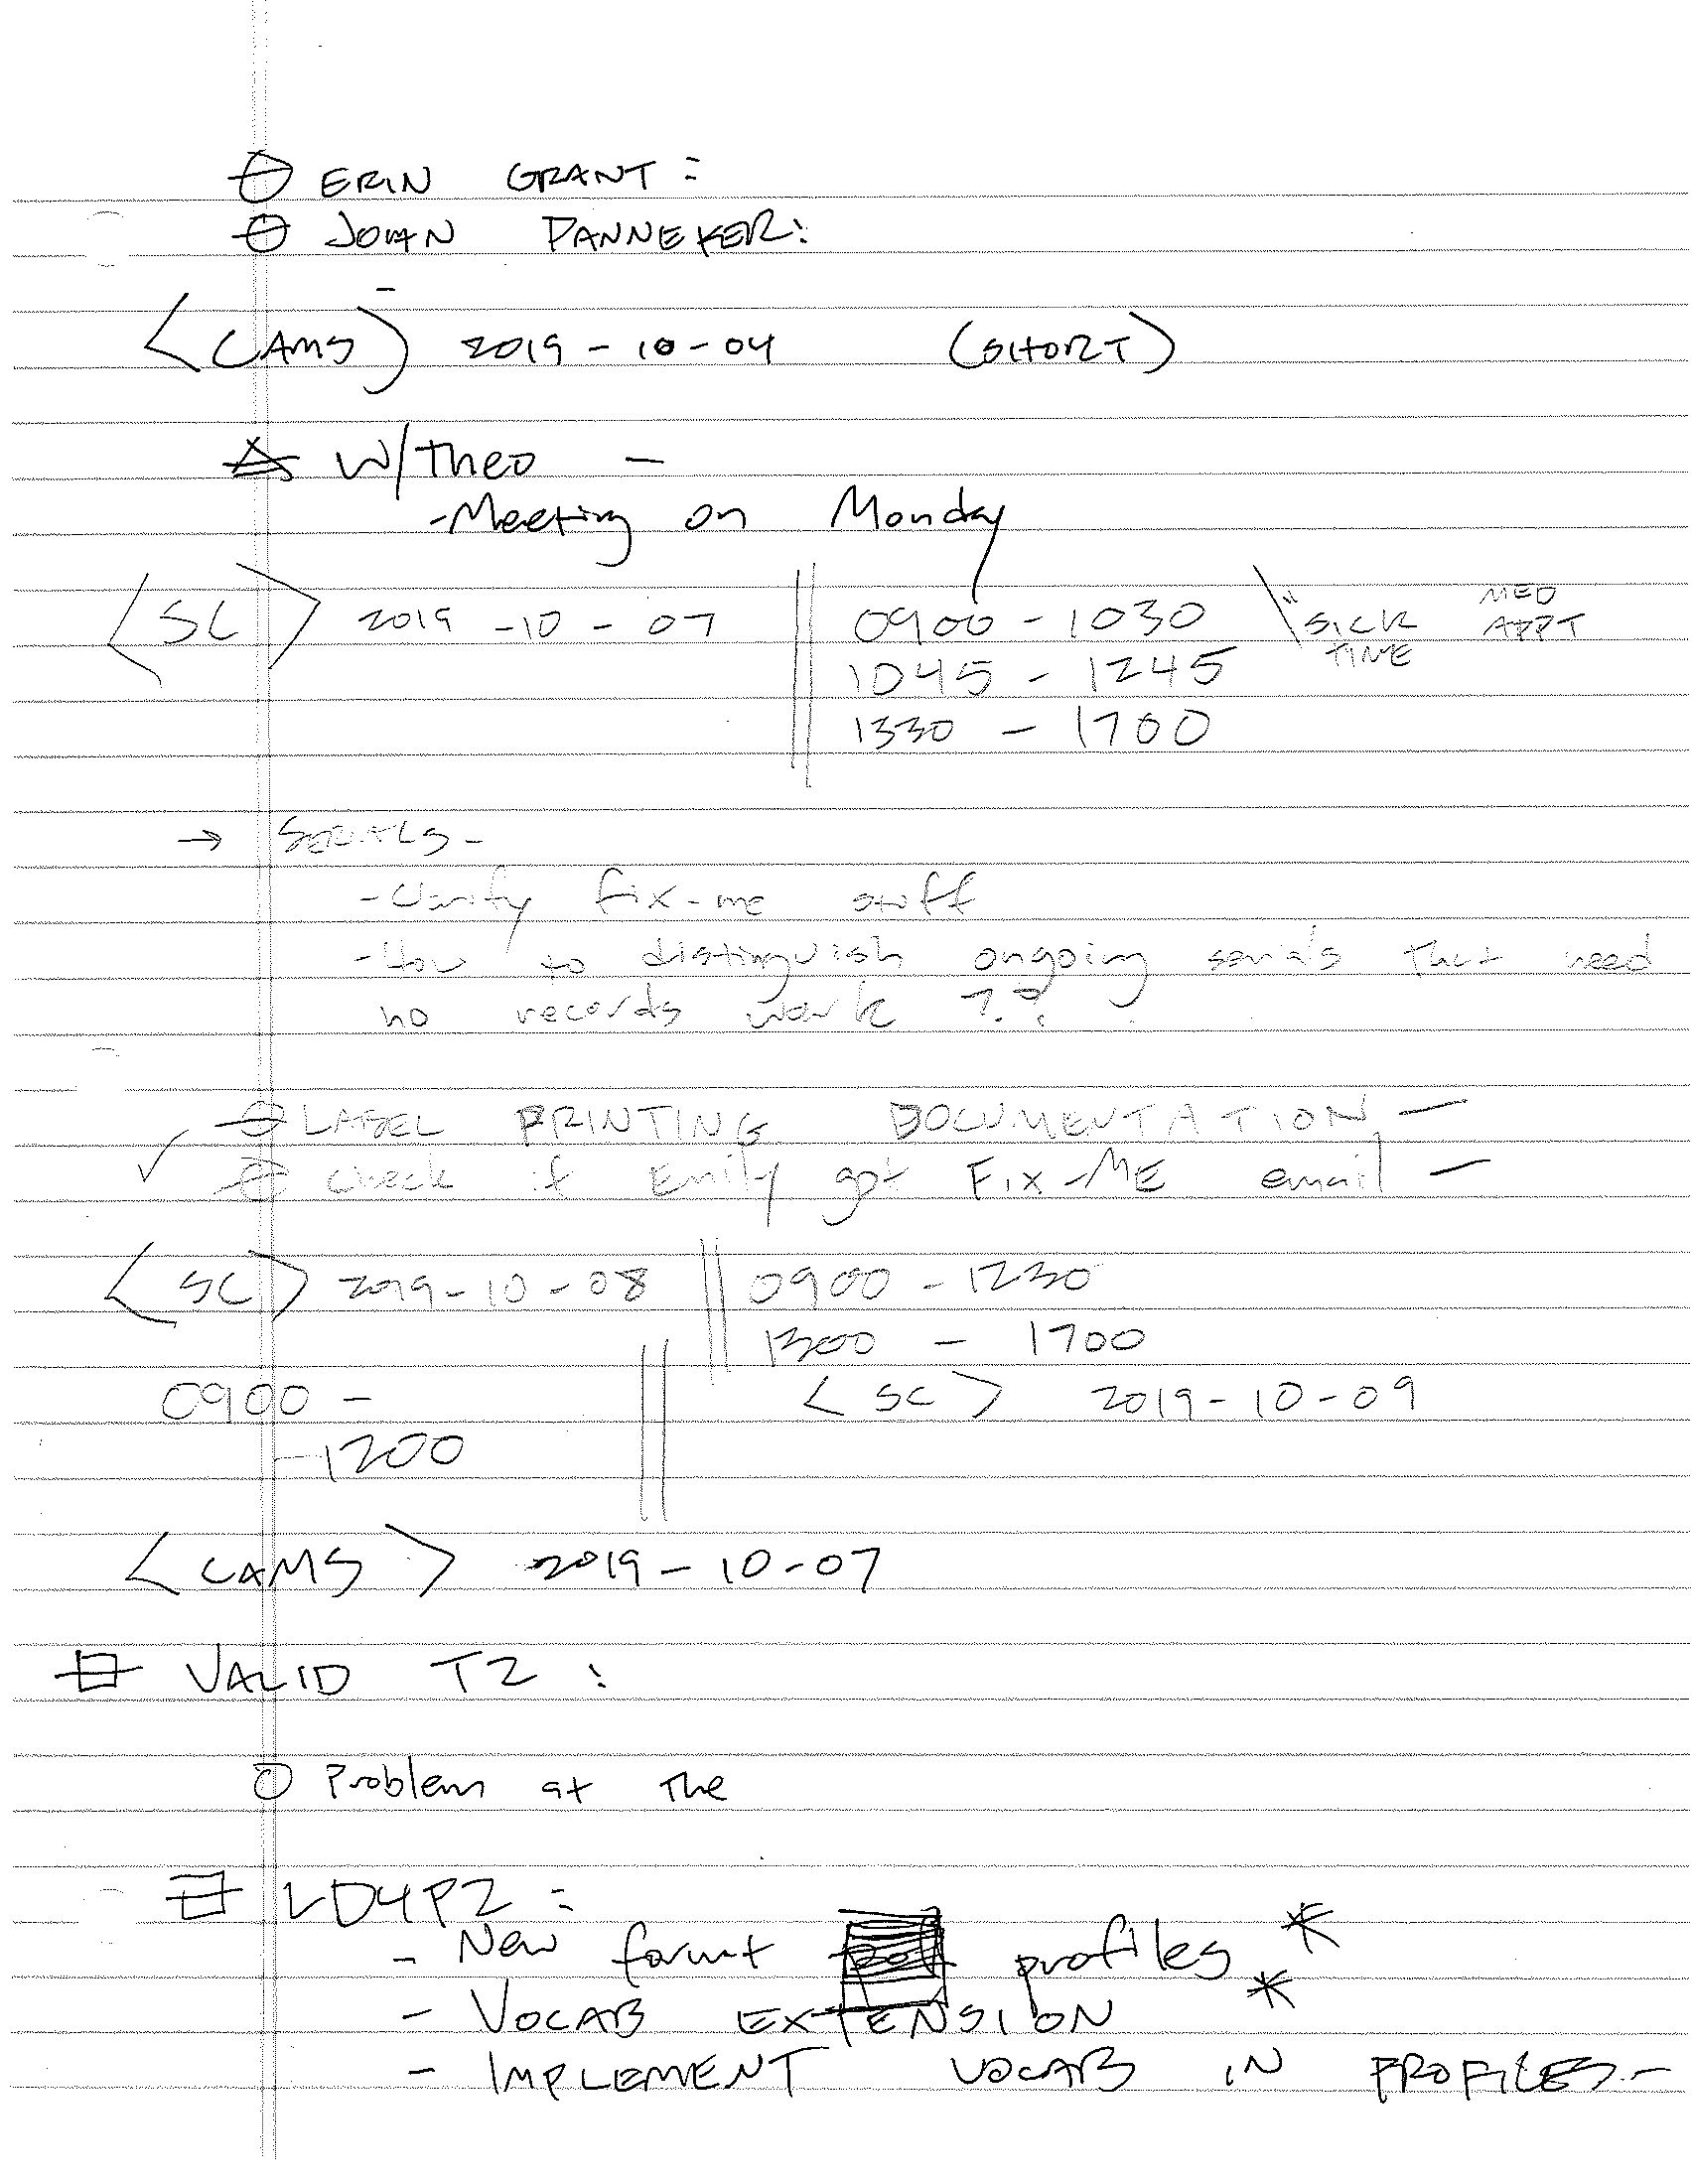 ERIN GRANT:
JOHN PANNEKER:
<CAMS> 2019-10-04 (SHORT)
W/Theo -
-Meeting on Monday
<SC> 2019-10-07 || 0900-1030 \ "SICK TIME MED APPT
1045 - 1245
1330 - 1700
→ SERIALS-
-Clarify fix-me stuff
-How to distinguish ongoing serials that need
no records work ??
LABEL PRINTING DOCUMENTATION -
✓ Check if Emily got FIX-ME email -
<SC> 2019-10-08 || 0900-1230
1300 - 1700
0900 - || <SC> 2019-10-09
-1200
<CAMS> 2019-10-07
VALID T2:
Problem at the
LD4P2:
- New format profiles *
- VOCAB EXTENSION *
- IMPLEMENT VOCAB IN PROFILES-